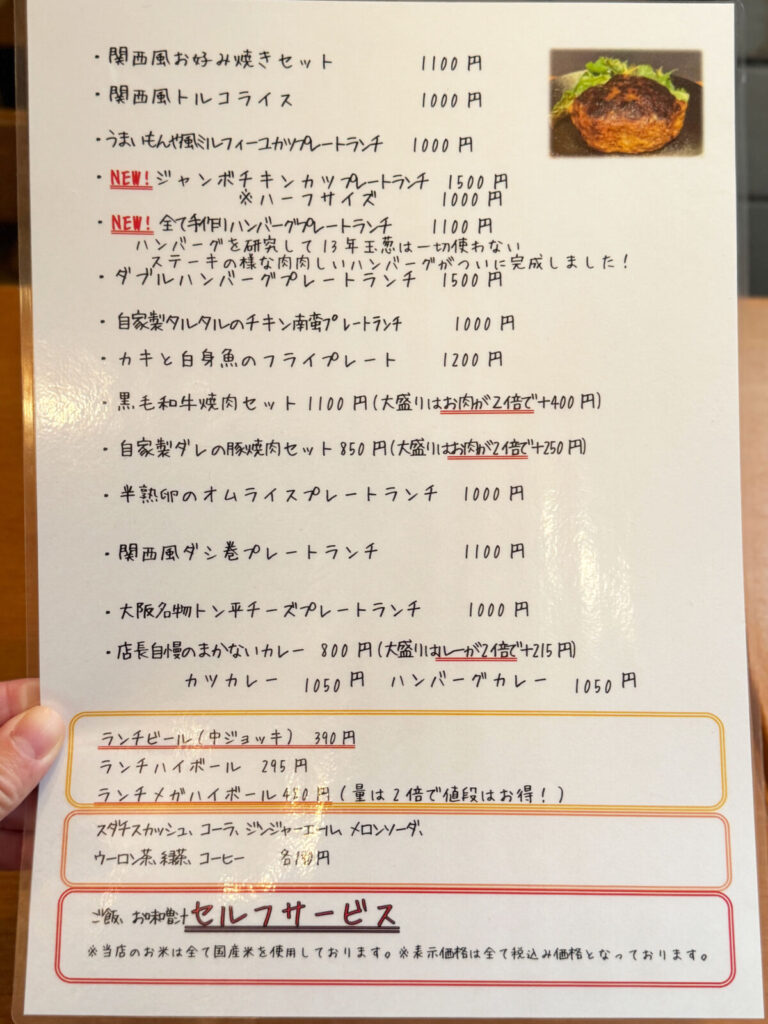 ・関西風お好み焼きセット 1100円
・関西風トルコライス 1000円
・うまいもんや風ミルフィーユカツプレートランチ 1000円
・NEW!ジャンボチキンカツプレートランチ 1500円
※ハーフサイズ 1000円
・NEW!全て手作りハンバーグプレートランチ 1100円
ハンバーグを研究して13年玉葱は一切使わない
ステーキの様な肉肉しいハンバーグがついに完成しました!
・ダブルハンバーグプレートランチ 1500円
・自家製タルタルのチキン南蛮プレートランチ 1000円
・カキと白身魚のフライプレート 1200円
・黒毛和牛焼肉セット 1100円(大盛りはお肉が2倍で+400円)
・自家製ダレの豚焼肉セット 850円(大盛りはお肉が2倍で+250円)
・半熟卵のオムライスプレートランチ 1000円
・関西風ダシ巻プレートランチ 1100円
・大阪名物トン平チーズプレートランチ 1000円
・店長自慢のまかないカレー 800円(大盛りはルーが2倍で+215円)
カツカレー 1050円 ハンバーグカレー 1050円
ランチビール(中ジョッキ) 390円
ランチハイボール 295円
ランチメガハイボール 円(量は2倍で値段はお得!)
スダチスカッシュ、コーラ、ジンジャーエール、メロンソーダ、
ウーロン茶、緑茶、コーヒー 各 円
ご飯、お味噌汁セルフサービス
※当店のお米は全て国産米を使用しております。※表示価格は全て税込み価格となっております。